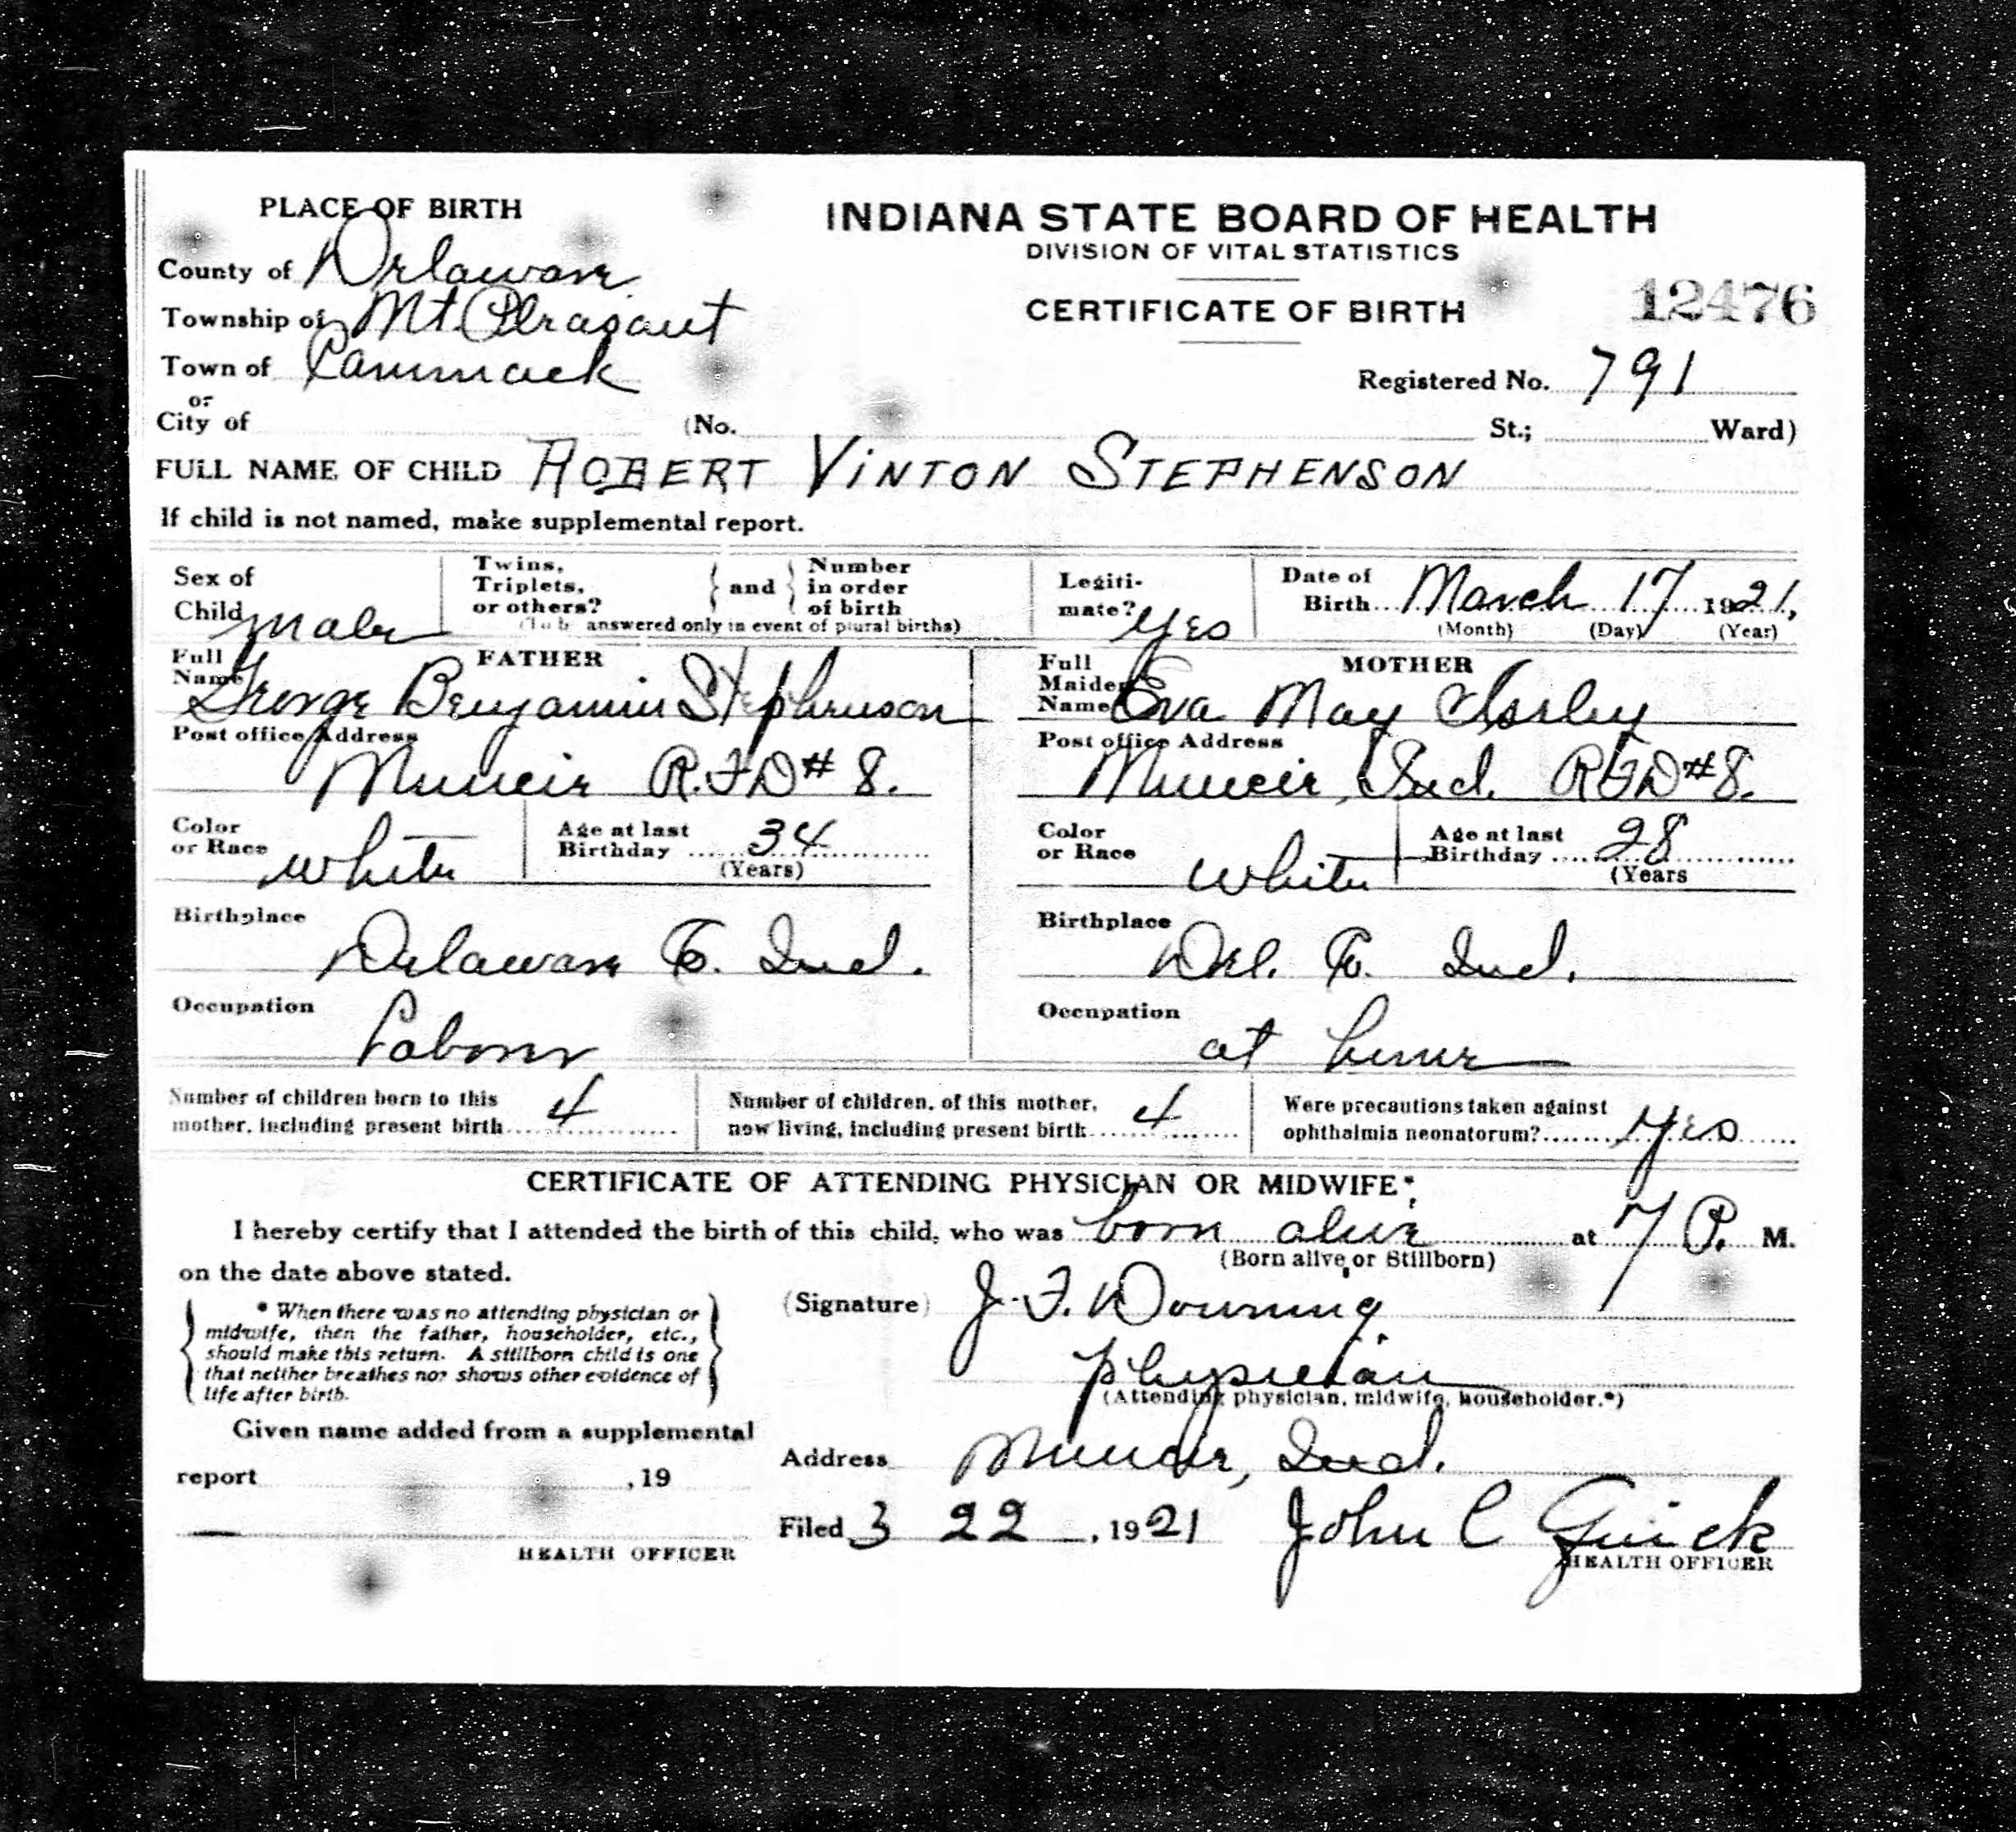 PLACE OF BIRTH
INDIANA STATE BOARD OF HEALTH
DIVISION OF VITAL STATISTICS
County of Delaware
CERTIFICATE OF BIRTH
12476
Township of Mt. Pleasant
Town of Cammack
Registered No. 791
or
City of (No. St.; Ward)
FULL NAME OF CHILD ROBERT VINTON STEPHENSON
If child is not named, make supplemental report.
Sex of Child male
Twins, Triplets, or others? and Number in order of birth
(To be answered only in event of plural births)
Legiti-mate? Yes
Date of Birth March 17 1921,
(Month) (Day) (Year)
FATHER
Full Name George Benjamin Stephenson
MOTHER
Full Maiden Name Eva May
Post office Address
Muncie R.F.D # 8.
Post office Address
Muncie, Ind. R.F.D #8.
Color or Race white
Age at last Birthday 34
(Years)
Color or Race white
Age at last Birthday 28
(Years
Birthplace
Delaware Co. Ind.
Birthplace
Del. Co. Ind.
Occupation
Labor
Occupation
at home
Number of children born to this mother, including present birth 4
Number of children, of this mother, now living, including present birth 4
Were precautions taken against ophthalmia neonatorum? Yes
CERTIFICATE OF ATTENDING PHYSICIAN OR MIDWIFE*
I hereby certify that I attended the birth of this child, who was born alive at 7 P. M.
(Born alive or Stillborn)
on the date above stated.
* When there was no attending physician or
midwife, then the father, householder, etc.,
should make this return. A stillborn child is one
that neither breathes nor shows other evidence of
life after birth.
(Signature) J. F. Downing
physician
(Attending physician, midwife, householder.*)
Given name added from a supplemental
report , 19
Address Muncie, Ind.
Filed 3 22 , 1921 John C Quick
HEALTH OFFICER
HEALTH OFFICER